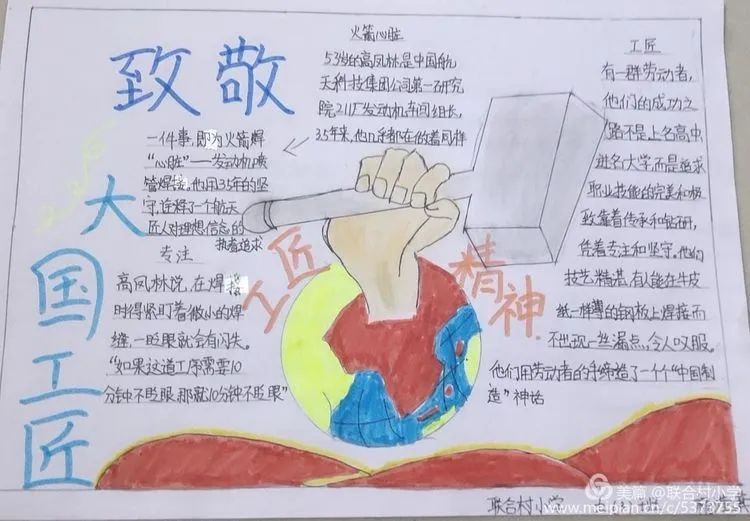 致敬
大国工匠
火箭心脏
53岁的高凤林是中国航
天科技集团公司第一研究
院211厂发动机车间组长,
35年来,他几乎都在做着同样
一件事,即为火箭焊
“心脏”——发动机喷
管焊接,他用35年的坚
守,诠释了一个航天
匠人对理想信念的
执着追求
专注
高凤林说,在焊接
时得紧盯着微小的焊
缝,一眨眼就会有闪失。
“如果这道工序需要10
分钟不眨眼,那就10分钟不眨眼”
工匠
精神
工匠
有一群劳动者,
他们的成功之
路不是上名高中,
进名大学,而是追求
职业技能的完美和极
致,靠着传承和钻研,
凭着专注和坚守,他们
技艺精湛,有人能在牛皮
纸一样薄的钢板上焊接而
不出现一丝漏点,令人叹服。
他们用劳动者的手缔造了一个个“中国制
造”神话
联合村小学
美篇 @联合村小学
www.meipian.cn/c/5373755